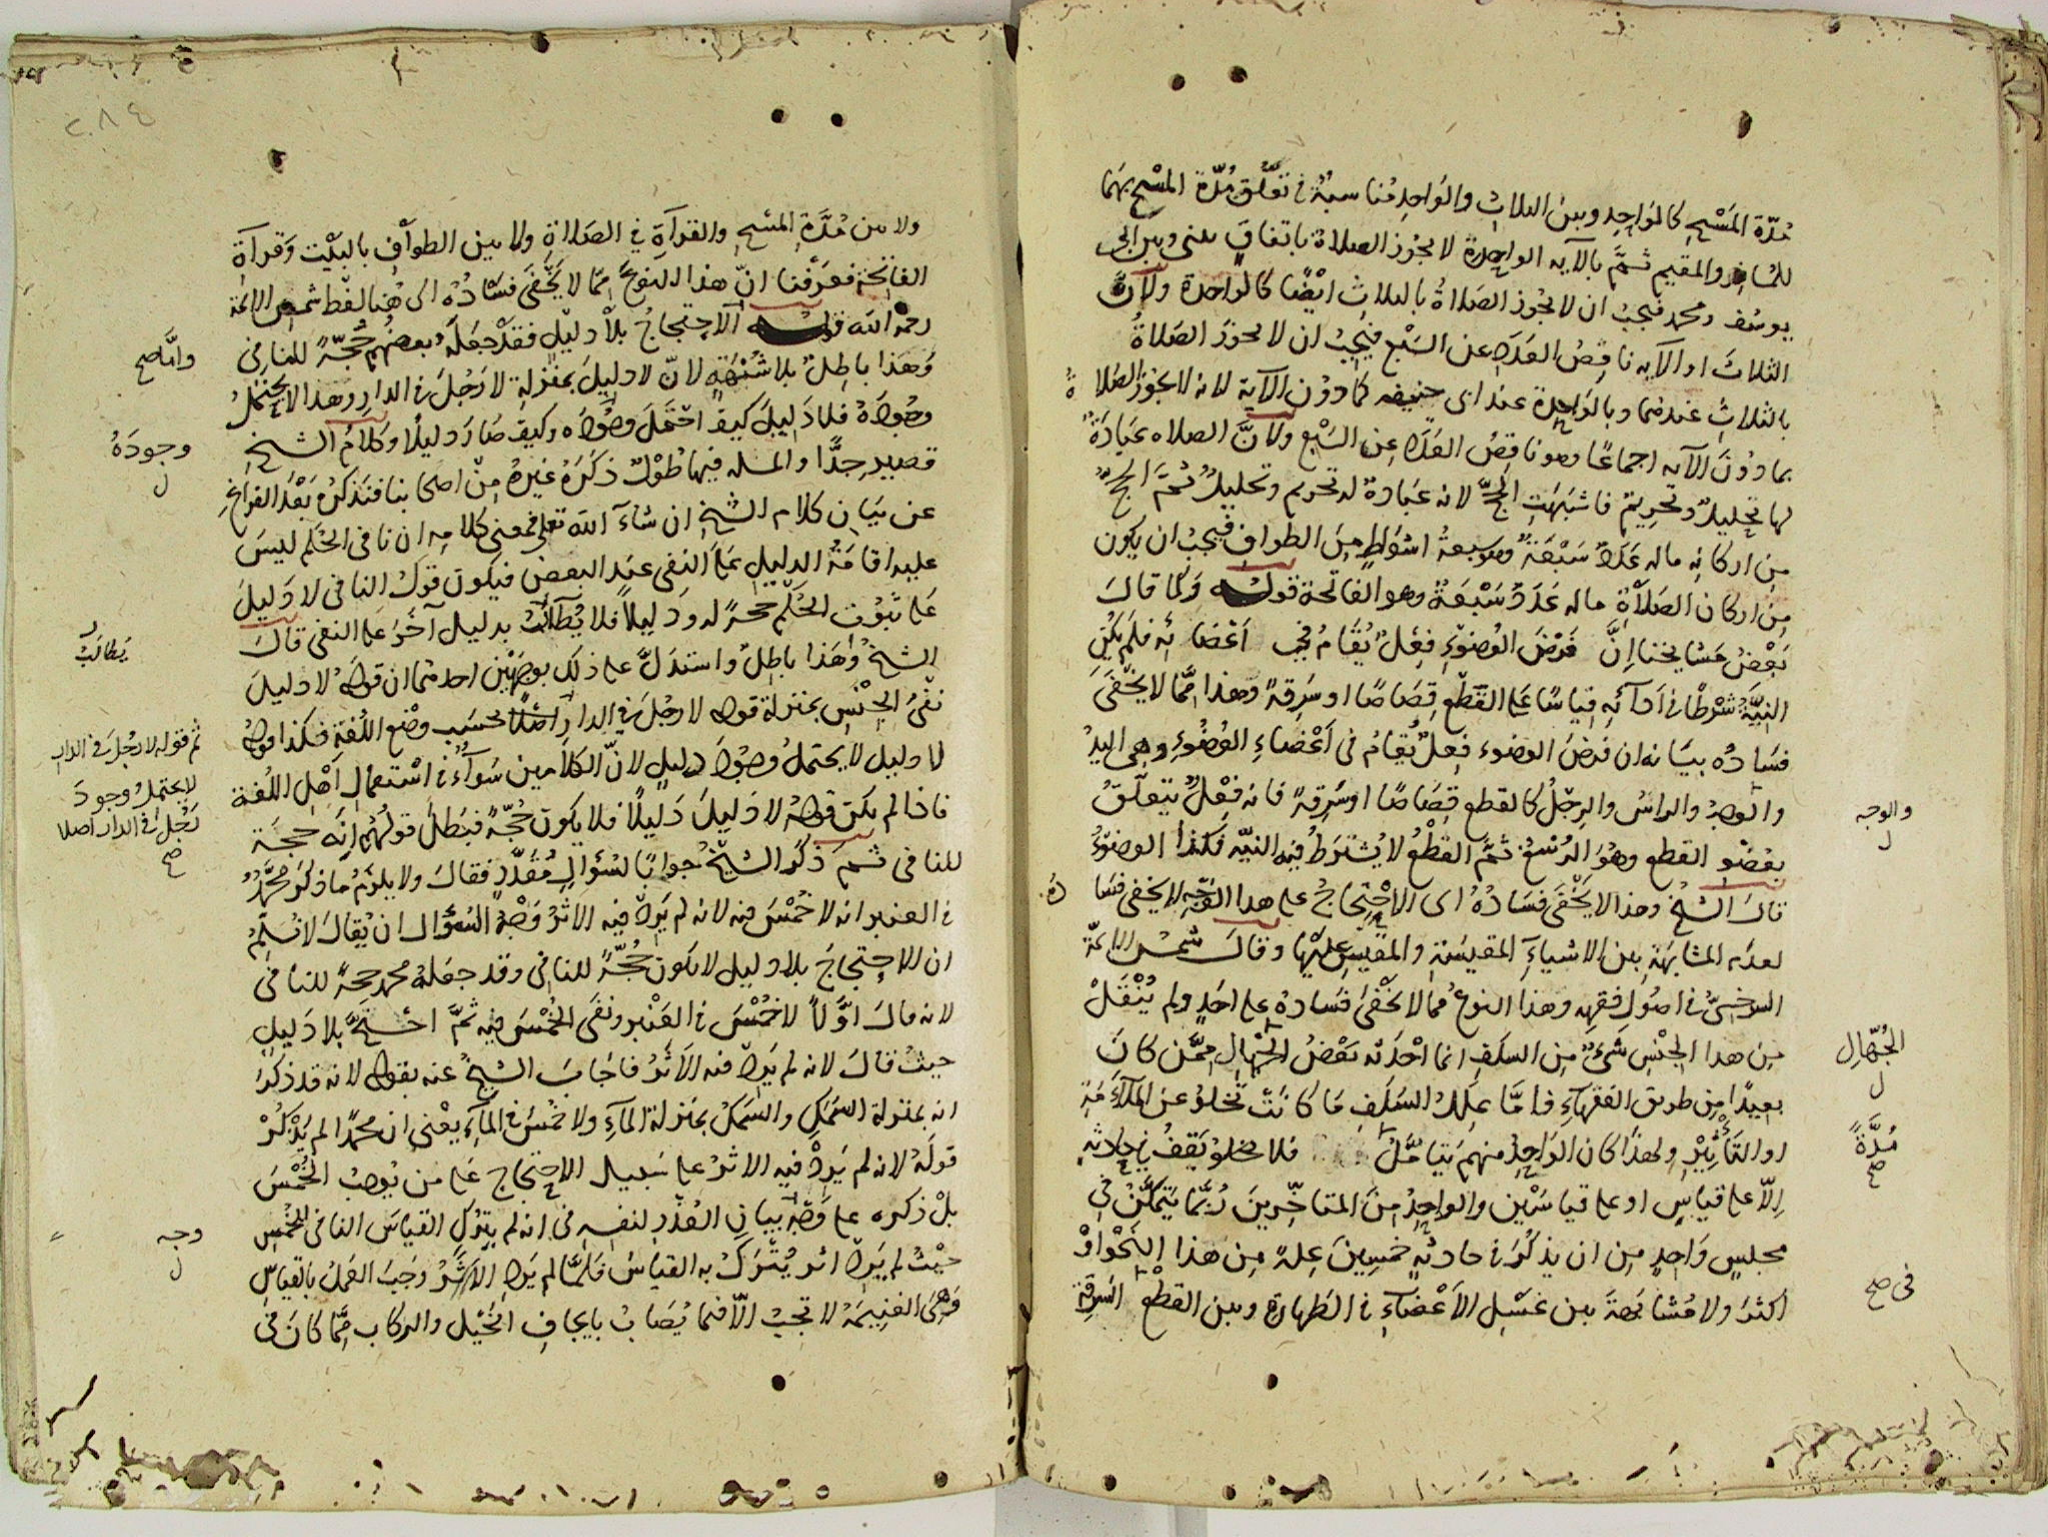 مُدّة المَسْحِ كالواحِدِ وبين الثلاثِ والواحِدِ مُناسبةٌ في تعلّق مُدّة المسْحِ بهما
للمسافر والمقيم ثمَّ بالآيه الواحِدة لا يجُوز الصلاة باتفاقٍ بيني وبين ابى
يوسُف ومحمد فيجبُ ان لا يجُوز الصَلاةُ بالثلاثِ ايْضًا كالواحدة ولأنَّ
الثلاثَ او الآيه ناقِصُ العَدَدِ عن السَبْع فيَجِبُ ان لا يجوزَ الصَلاةُ
بالثلاثِ عندهما وبالواحِدة عند ابى حنيفه كما دوُن الآية لانه لا يجُوز الصَلاةُ
بما دوُنَ الآيه اجماعًا وهو ناقِصُ العَدَدِ عن السَبْع ولانَّ الصلاه عبَادَةٌ
لها تحليلٌ وتحريمٌ فاشبَهَتِ الحَجَّ لانه عبَادة له تحريم وتحليلٌ ثمّ الحجُّ
مِن اركانه ماله عَدَدٌ سَبْعَةٌ وهو سبعةُ اشوَاطٍ مِنَ الطوافِ فيجبُ ان يكون
مِن اركان الصَلاْةِ ماله عَدَدٌ سَبْعَةٌ وهو الفاتحة قولـــه وَكما قالَ
بَعْضُ مَشايخنا اِنَّ فَرْضَ الوُضوْءِ فِعْلٌ يُقَامُ في اَعْضَائِه فلم يكن
النيّةُ شرْطًا في اَدآئِه قياسًا على القطْع قِصَاصًا او سَرِقةً وهذا ممّا لا يَخْفَى
فسَادُه بيَانه ان فرضَ الوضوء فِعلٌ يُقامُ في اَعْضاءِ الوُضُوْءِ وهى اليدُ
والوجهُ والراسُ والرِجْلُ كالقطع قِصَاصًا او سَرِقةً فانه فِعْلٌ يتعلّقُ
بعضْوِ القطع وهُوَ الرُسْغُ ثمَّ القطْعُ لا يُشترَطُ فيه النيّه فكذا الوضوْءُ
قالَ الشيْخُ وهذا لا يَخْفَى فسَادُهُ اى الاحْتِجاجُ على هذا الوَجْهِ لا يخفى فسَادُهُ
لعدَم المشابهَة بين الاشياءِ المقيسَةِ والمقيسِ علَيْها وقالَ شمسُ الائمّة
السرخسىُّ في اصُول فقهِه وهذا النوعُ ممّا لا يخْفىٰ فسَادهُ على احَدٍ ولم يُنْقَلْ
من هذا الجنْسِ شَىءٌ مِن السلَفِ انما احْدَثه بَعْضُ الجُهّالِ ممَّن كانَ
بعيدًا مِن طريق الفقهآءِ فامّا عِلَلُ السَلَفِ مَا كانَتْ تخلوُ عن الملآءَمَةِ
او التأثيْرِ ولهذا كان الوَاحِدُ منهم يَتامَّلُ فلا يخلوُ يَقفُ في حادثةٍ
اِلّا على قياسٍ او على قياسَيْن والواحِدُ مِنَ المتاخِّرينَ رُبَّما يَتمكَّنُ في
مجلسٍ وَاحِدٍ مِن ان يذكُرَ في حادثةٍ خمسِينَ عِلةً مِن هذا النحْوِ اَوْ
اكثرَ ولا مُشابَهةَ بين غسْلِ الاَعْضآءِ في الطهارة وبين القطْع السَرقةِ
والوجه
ل
الجُهّالِ
ل
مُدَّةً
صح
فى صح
٢٨٤
ولا بين مُدَّةِ المَسْحِ والقرآءةِ في الصَلاةِ ولا بين الطوافِ بالبيْت وَقرآءةِ
الفاتحة فعَرفنا انّ هذا النوعَ ممّا لا يَخْفَى فسَادُهُ الى هُنا لفظ شمس الائمة
رحمه الله قولـــه اَلاحتِجاجُ بلاْ دليْلٍ فقدْ جَعَلَهُ بعضُهم حُجّةً للنافى
وَهذا باطِلٌ بلا شُبْهَةٍ لانّ لا دليلَ بمنزلةِ لا رَجُلَ في الدارِ وهذا لا يحتملُ
وجُودَهُ فلا دَليلَ كيفَ احْتَملَ وجُودَه وكيف صَارَ دليلًا وكلامُ الشيخ
قصير جدًّا والمسله فيها طُوْلٌ ذَكَرَهُ غيْرهُ مِنْ اصحابنا فنَذكرُه بَعْدَ الفراغِ
عن بَيان كلام الشيخ ان شآءَ الله تعلى فمعنى كلامِه ان نافى الحُكم ليسَ
عليه اقامَةُ الدليلِ علَى النفى عند البعض فيكون قوْلُ النافى لا دَليلَ
على ثبوُت الحُكْم حجةً له ودليلًا فلا يُطالَبُ بدليل آخَرَ على النفى قالَ
الشيخُ وَهَذا باطِلٌ واستدَلَّ على ذلك بوجْهَيْن احدهما ان قولهُ لا دليلَ
نفْىُ الجنْسِ بمنزلة قوله لا رجُلَ في الدارِ اصْلًا بحسَبِ وضْعِ اللُغةِ فكذا قولهُ
لا دليل لا يحتملُ وجُودَ دليلٍ لانّ الكلامين سَوآءٌ في اسْتعمالِ اَهْلِ اللُغة
فاذا لم يكن قولهُ لا دَليلَ دَليلًا فلا يكون حُجّةً فبَطلَ قولُهُم اِنّه حجة
للنافى ثمّ ذَكرَ الشيْخُ جوابًا لسُؤالٍ مُقدَّرٍ فقالَ ولا يلزَمُ ما ذكرَ محمَّدٌ
في العنبر انه لا خُمْسَ فيه لانه لم يَرِدْ فيه الاثرُ وَجْهُ السُؤال ان يُقالَ لا نُسَلِّمُ
ان الاحتِجاجَ بلا دليل لا يكون حُجّةً للنافى وقد جعَلهُ محمد حجةً للنافى
لانه قالَ اوَّلًا لا خُمْسَ في العَنْبر ونفَى الخُمْسَ فيه ثمَّ احتَجَّ بلا دَليلٍ
حيثُ قالَ لانه لم يَرِدْ فيه الاَثرُ فاجَابَ الشيخُ عنه بقوله لانه قد ذكرَ
انه بمنزلة السَمَكِ والسَمكُ بمنزلة المآءِ ولا خُمْسَ في المآءِ يعْنى ان محمدًا لم يَذْكُرْ
قولَهُ لانه لم يَرِدْ فيه الاثرُ على سَبيل الاحتجاج عَلى من يُوجبُ الخُمْسَ
بلْ ذكره على وَجْهِ بيانِ العُذْرِ لنفسه فى انه لم يَترُكِ القياسَ النافى للخُمْسِ
حيْثُ لم يَرِدْ اثر يُتْرَكُ به القياسُ فَلمَّا لم يَرِدِ الاثَرُ وَجَبَ العَملُ بالقياسِ
وَهىَ الغنِيمَةُ لا تجبُ الّا فيما يُصَابُ بايجافِ الخَيْلِ والركاب ممّا كانَ في
وامَّا صح
وجودَهُ
ل
يُطَالَبُ
ثم قوله لا رجُلَ في الدارِ
لا يحتملُ وجودَ
رَجُلٍ في الدار اصلا
صح
وجه
ل